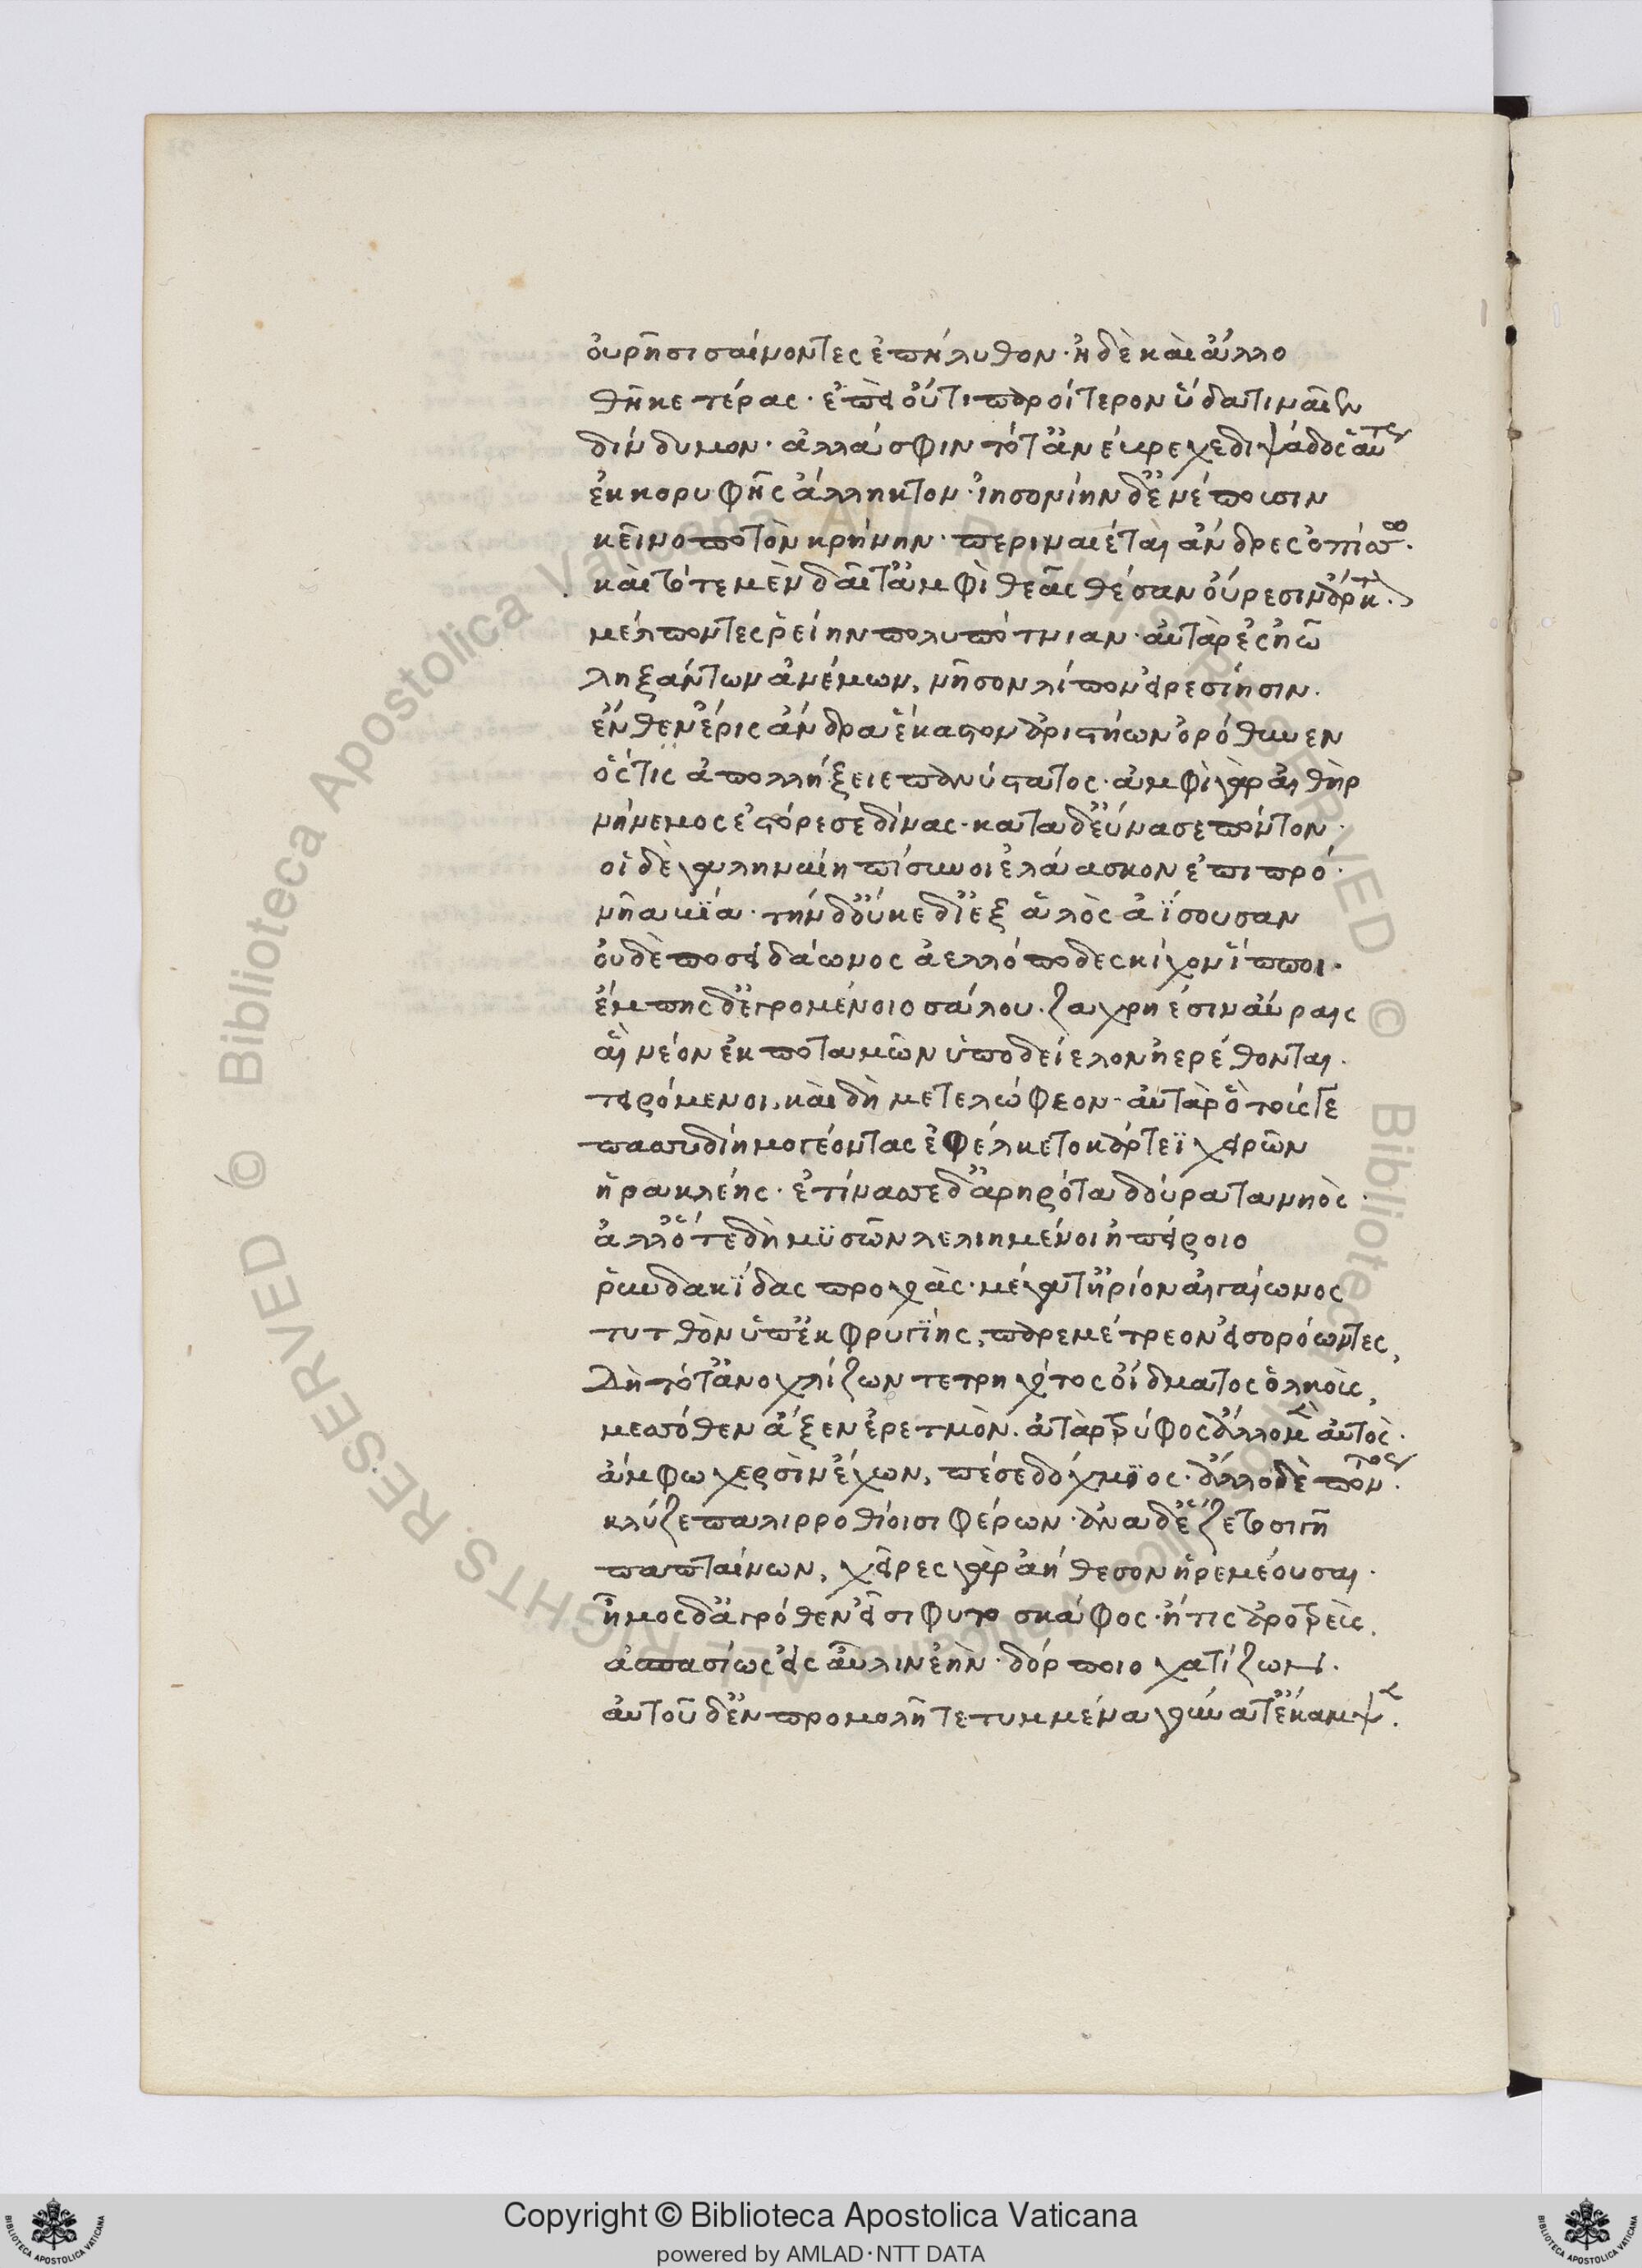 οὐρῆσι σαίνοντες ἐπήλυθον· ἡ δὲ καὶ ἄλλο
θῆκε τέρας· ἐπεὶ οὔτι παροίτερον ὕδατι νᾶεν
δίνδυμον· ἀλλά σφιν τότ' ἂν ἔκρεχε διψάδος αὔτως
ἐκ κορυφῆς ἄλληκτον· ἰησονίην δ' ἐνέπουσιν
κεῖνο ποτὸν κρήνην· περιναιέται ἄνδρες ὀπίσσω.
καὶ τότε μὲν δαῖτ' ἀμφὶ θεᾶς θέσαν οὔρεσιν ἄρκτων.
μέλποντες ῥείην πολυπότνιαν· αὐτὰρ ἐς ἠῶ
ληξάντων ἀνέμων, νῆσον λίπον εἰρεσίησιν.
ἔνθεν ἔρις ἄνδρα ἕκαστον ἀριστήων ὀρόθυνεν
ὅστις ἀπολλήξειε πανύστατος· ἀμφὶ γὰρ αἰθὴρ
νήνεμος ἐστόρεσε δίνας· κατὰ δ' εὔνασε πόντον·
οἱ δὲ γαληναίῃ πίσυνοι ἐλάασκον ἐπιπρό·
νῆα βίᾳ· τὴν δ' οὔκε διὲξ ἁλὸς ἀΐσουσαν
οὐδὲ ποσειδάωνος ἀελλόποδες κίχον ἵπποι.
ἔμπης δ' ἐγρομένοιο σάλου. ζαχρηέσιν αὔραις
αἳ νέον ἐκ ποταμῶν ὑπὸ δείελον ἠερέθονται.
τειρόμενοι, καὶ δὴ μετελώφεον· αὐτὰρ ὃ τούσγε
πασσυδίῃ μογέοντας ἐφέλκετο κάρτεϊ χειρῶν
ἡρακλέης· ἐτίνασσε δ' ἀρηρότα δούρατα νηός·
ἀλλ' ὅτε δὴ μυσῶν λελιημένοι ἠπείροιο
ῥυνδακίδας προχοὰς· μέγα τ' ἠρίον αἰγαίωνος
τυτθὸν ὑπὲκ φρυγίης, παρεμέτρεον εἰσορόωντες,
Δὴ τότ' ἀνοχλίζων τετρηχότος οἴδματος ὁλκοὺς,
μεσσόθεν ἆξεν ἐρετμὸν. ἀτὰρ τρύφος ἄλλο μὲν αὐτὸς.
ἄμφω χερσὶν ἔχων, πέσε δόχμιος· ἄλλο δὲ πόντος.
κλύζε παλιρροθίοισι φέρων· ἀνὰ δ' ἕζετο σιγῇ
παπταίνων, χεῖρες γὰρ ἀήθεσον ἠρεμέουσαι.
ἦμος δ' ἀγρόθεν εἶσι φυτοσκάφος· ἤ τις ἀροτρεὺς.
ἀσπασίως εἰς αὖλιν ἑὴν· δόρποιο χατίζων.
αὐτοῦ δ' ἐν προμολῇ τετρυμμένα γούνατ' ἔκαμψε.
Copyright © Biblioteca Apostolica Vaticana
powered by AMLAD·NTT DATA